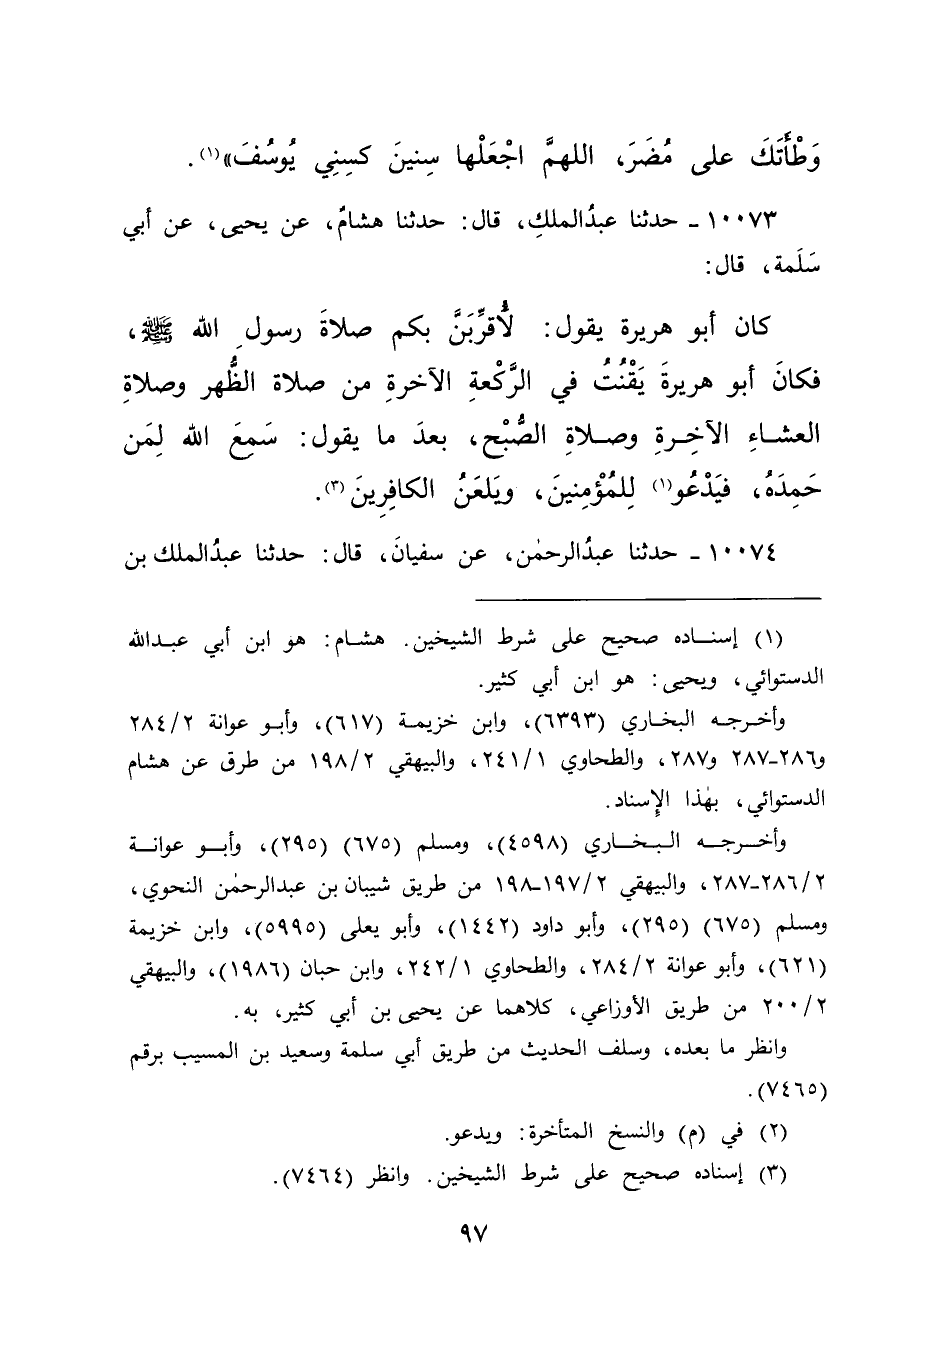 وَطْأَتَكَ على مُضَرَ، اللهمَّ اجْعَلْها سِنينَ كسِنِي يُوسُفَ»(١).
١٠٠٧٣ - حدثنا عبدُالملكِ، قال: حدثنا هشامٌ، عن يحيى، عن أبي
سَلَمة، قال:
كان أبو هريرة يقول: لَأُقرِّبَنَّ بكم صلاةَ رسولِ الله ﷺ،
فكانَ أبو هريرةَ يَقْنُتُ في الرَّكْعةِ الآخرةِ من صلاة الظُّهر وصلاةِ
العشاءِ الآخِرةِ وصلاةِ الصُّبْح، بعدَ ما يقول: سَمِعَ الله لِمَن
حَمِدَهُ، فيَدْعُو(١) لِلمُؤْمِنينَ، ويَلعَنُ الكافِرِينَ(٣).
١٠٠٧٤ - حدثنا عبدُالرحمٰن، عن سفيانَ، قال: حدثنا عبدُالملك بن
(١) إسناده صحيح على شرط الشيخين. هشام: هو ابن أبي عبدالله
الدستوائي، ويحيى: هو ابن أبي كثير.
وأخرجه البخاري (٦٣٩٣)، وابن خزيمة (٦١٧)، وأبو عوانة ٢٨٤/٢
و٢٨٦-٢٨٧ و٢٨٧، والطحاوي ٢٤١/١، والبيهقي ١٩٨/٢ من طرق عن هشام
الدستوائي، بهٰذا الإِسناد.
وأخرجه البخاري (٤٥٩٨)، ومسلم (٦٧٥) (٢٩٥)، وأبو عوانة
٢٨٦/٢-٢٨٧، والبيهقي ١٩٧/٢-١٩٨ من طريق شيبان بن عبدالرحمٰن النحوي،
ومسلم (٦٧٥) (٢٩٥)، وأبو داود (١٤٤٢)، وأبو يعلى (٥٩٩٥)، وابن خزيمة
(٦٢١)، وأبو عوانة ٢٨٤/٢، والطحاوي ٢٤٢/١، وابن حبان (١٩٨٦)، والبيهقي
٢٠٠/٢ من طريق الأوزاعي، كلاهما عن يحيى بن أبي كثير، به.
وانظر ما بعده، وسلف الحديث من طريق أبي سلمة وسعيد بن المسيب برقم
(٧٤٦٥).
(٢) في (م) والنسخ المتأخرة: ويدعو.
(٣) إسناده صحيح على شرط الشيخين. وانظر (٧٤٦٤).
٩٧